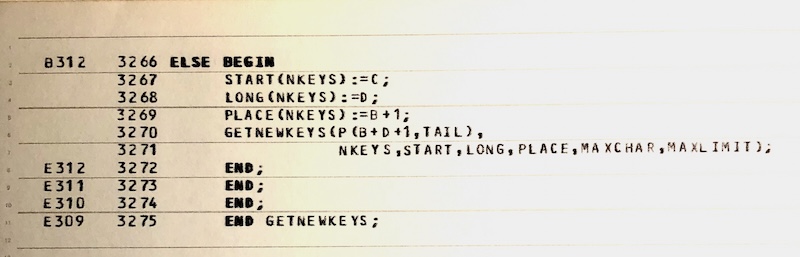 B312 3266 ELSE BEGIN
3267 START(NKEYS):=C;
3268 LONG(NKEYS):=D;
3269 PLACE(NKEYS):=B+1;
3270 GETNEWKEYS(P(B+D+1,TAIL),
3271 NKEYS,START,LONG,PLACE,MAXCHAR,MAXLIMIT);
E312 3272 END;
E311 3273 END;
E310 3274 END;
E309 3275 END GETNEWKEYS;